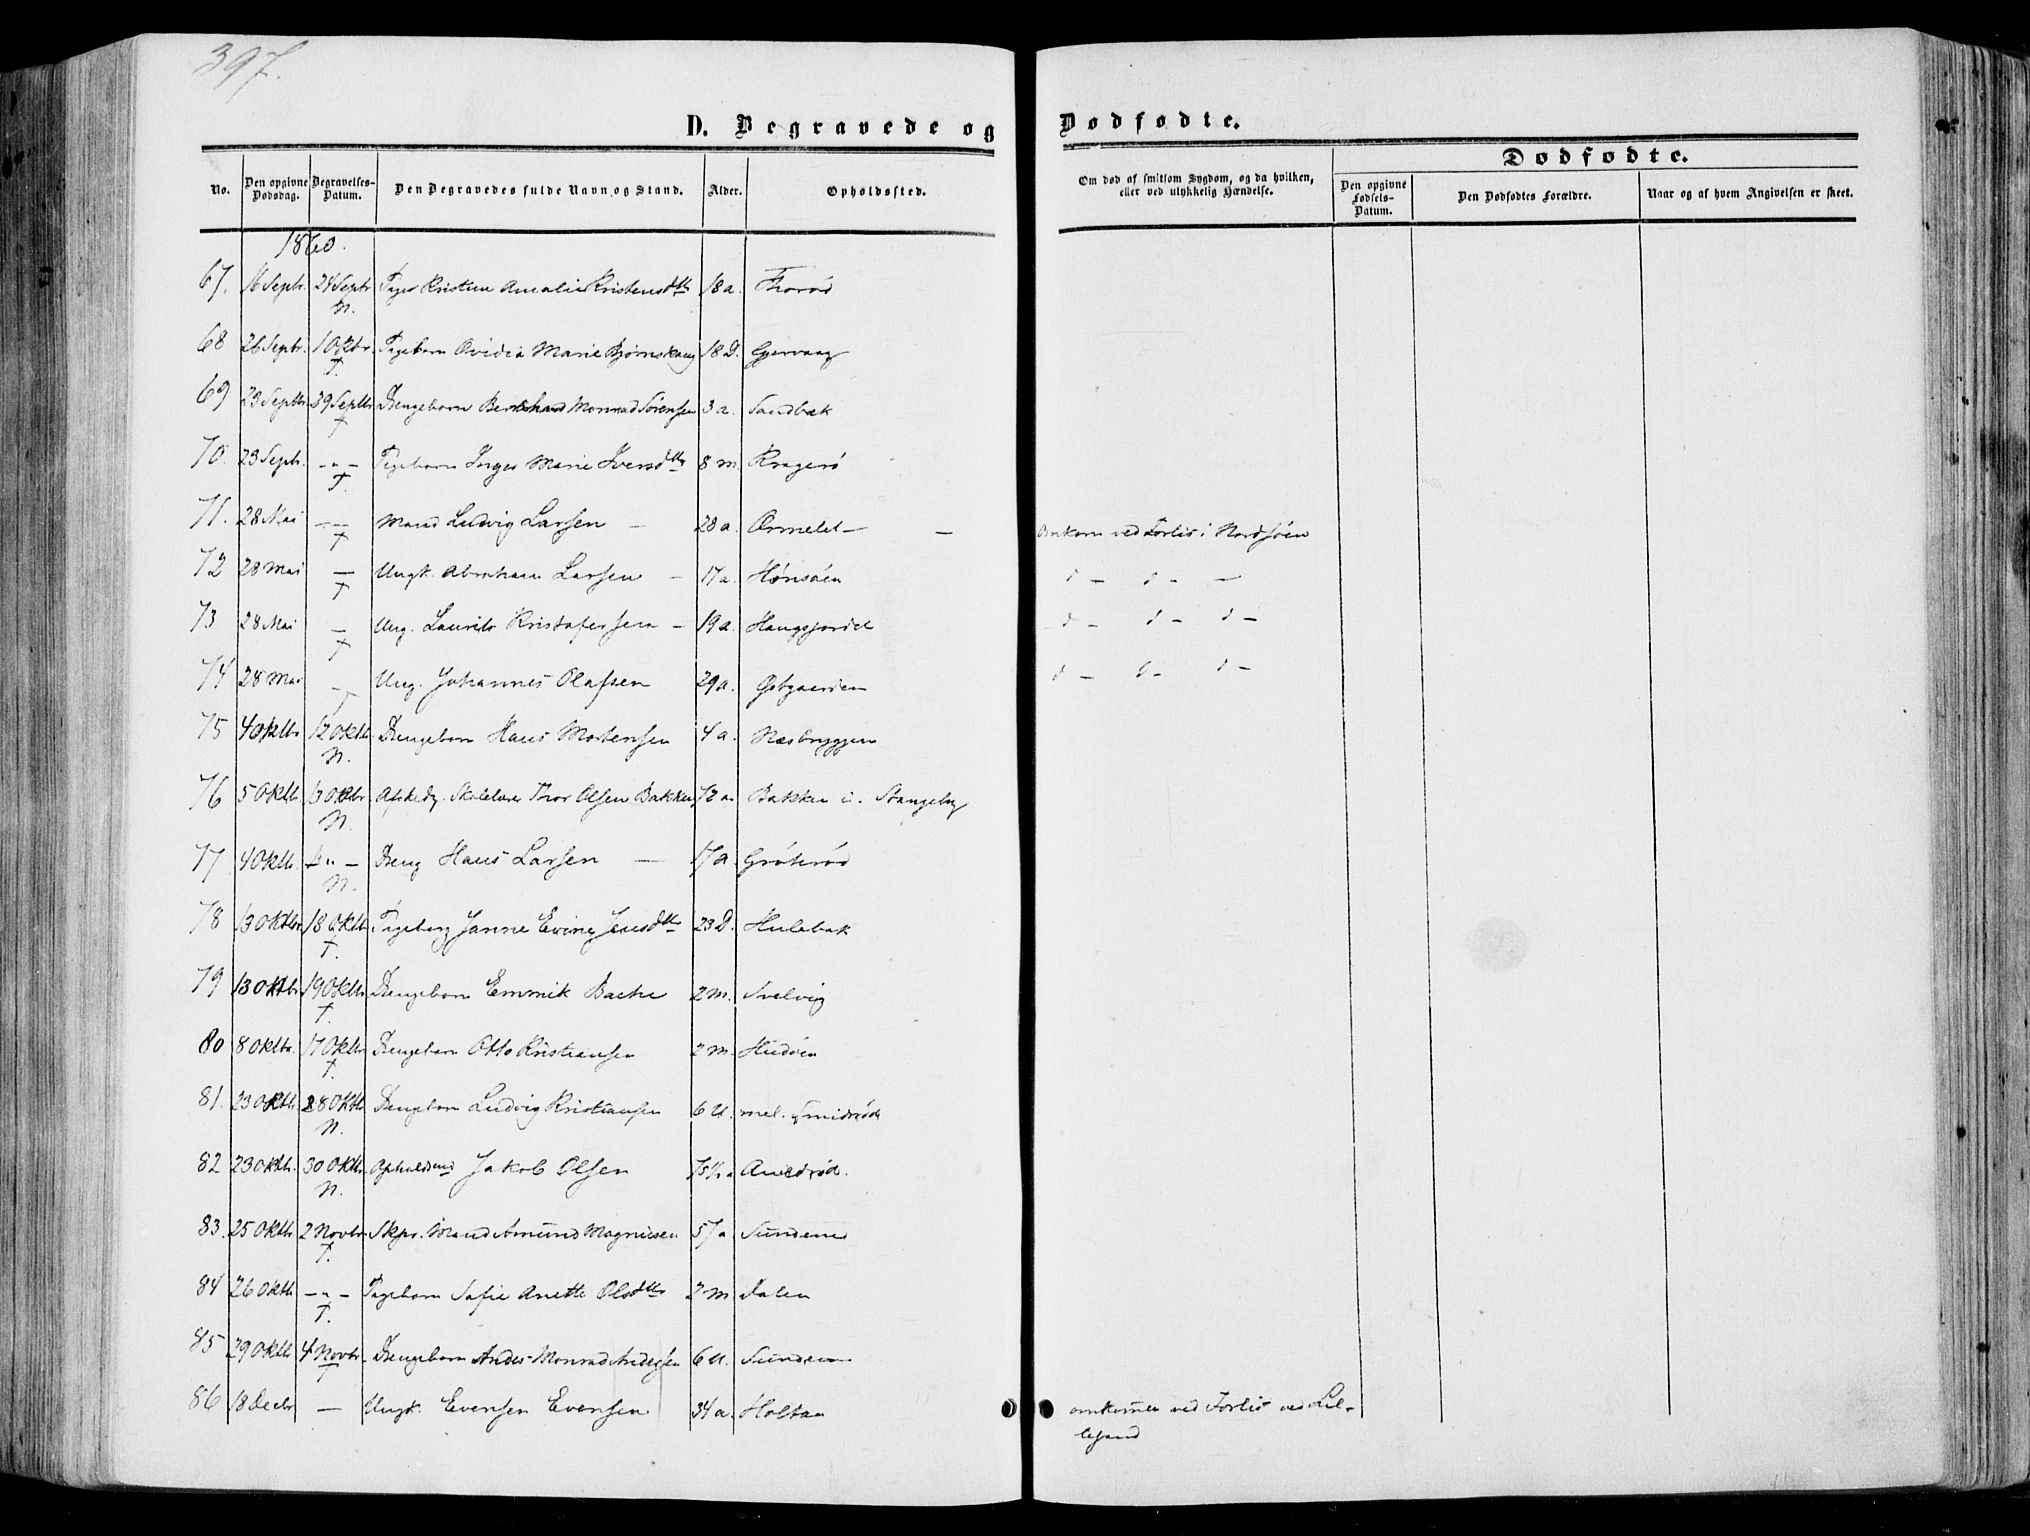 397.
D. Begravede og Dødfødte.
No. Den opgivne Dødsdag. Begravelses-Datum. Den Begravedes fulde Navn og Stand. Alder. Opholdssted. Om død af smitsom Sygdom, og da hvilken, eller ved ulykkelig Hændelse.
Dødfødte.
Den opgivne Fødsels-Datum. Den Dødfødtes Forældre. Naar og af hvem Angivelsen er skeet.
1860.
67. 16 Septr. 24 Septr N. Pige Kristine Amalie Kristensdtr 18 a. Thorød
68 26 Septr. 1 Oktbr. T. Pigebarn Ovidia Marie Bjørnskaug 18 D. Gjervaag
69 23 Septbr 29 Septbr T Drengebarn Bernhard Monrad Sørensen 3 a. Sandbæk
70. 23 Septr. - " - T. Pigebarn Inger Marie Iversdtr 8 m. Kragerø
71. 28 Mai - - T Mand Ludvig Larsen - 28 a. Ormelet - - Omkom ved Forlis i Nordsøen
72 28 Mai - T Ungk. Abraham Larsen - 17 a. Hønsøen d - d - -
73 28 Mai - T Ung. Laurits Kristofersen - 19 a. Haugsjordet d - d - d -
74 28 Mai - T Ung. Johannes Olafsen 29 a. d - d - d -
75 4 Oktbr 12 Oktb. N. Drengebarn Hans Mortensen 4 a. Næsbryggen
76 5 Oktb. 13 Oktbr. N. Afskedg. Skolelærer Thor Olsen Bakken 72 a. Bakken i. Stangeby
77 4 Oktb. - " - N. Dreng Hans Larsen - 17 a. Grøterød
78 13 Oktbr 18 Oktb. T. Pigebarn Janne Evine Jensdtr 23 D. Hulebak
79 13 Oktbr 19 Oktb. T. Drengebarn Emmik Bache 2 m. Svelvig
80 8 Oktbr. 17 Oktb T. Drengebarn Otto Kristiansen 2 m. Hudøen
81. 23 Oktb. 28 Oktb N. Drengebarn Ludvig Kristiansen 6 U. mel. Smidsrød
82 23 Oktb. 30 Oktb. N. Opholdsmd Jakob Olsen 75 1/2 a
83. 25 Oktb 2 Novbr T. Skps. Mand Amund Magnusen 57 a Sundene
84 26 Oktb - " - T. Pigebarn Sofie Anette Olsdtr 2 m Dalen
85 29 Oktb 4 Novbr T Drengebarn Anders Monrad Andersen 6 U. Sundene
86 18 Decbr - Ungk. Evensen Evensen 34 a. Holtan omkommen ved Forlis ved Lil-
lesand